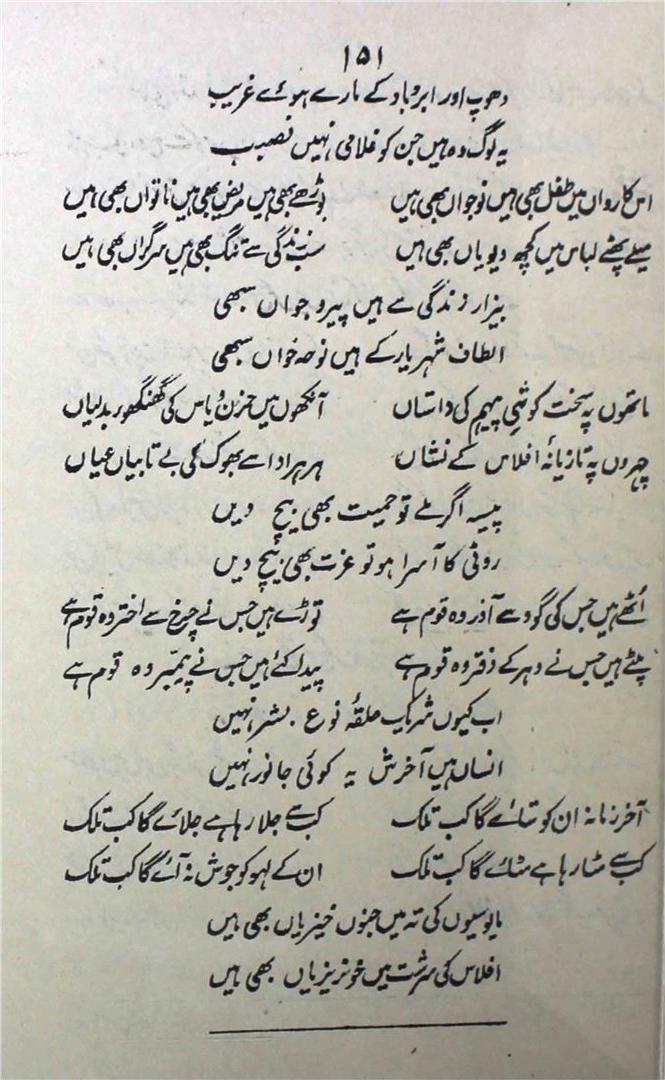 ۱۵۱
دھوپ اور ابر و باد کے مارے ہوئے غریب
یہ لوگ وہ ہیں جن کو غلامی نہیں نصیب
اس کارواں میں طفل بھی ہیں نوجواں بھی ہیں بوڑھے بھی ہیں مریض بھی ہیں ناتواں بھی ہیں
میلے پھٹے لباس میں کچھ دیویاں بھی ہیں سب زندگی سے تنگ بھی ہیں سرگراں بھی ہیں
بیزار زندگی سے ہیں پیر و جواں سبھی
الطاف شہریار کے ہیں نوحہ خواں سبھی
ماتھوں پہ سخت کوشئِ پیہم کی داستاں آنکھوں میں حزن و یاس کی گھنگھور بدلیاں
چہروں پہ تازیانۂ افلاس کے نشاں ہر ہر ادا سے بھوک کی بے تابیاں عیاں
پیسہ اگر ملے تو حمیت بھی بیچ دیں
روٹی کا آسرا ہو تو عزت بھی بیچ دیں
اُٹھے ہیں جس کی گود سے آذر وہ قوم ہے توڑے ہیں جس نے چرخ سے اختر وہ قوم ہے
پلٹے ہیں جس نے دہر کے دفتر وہ قوم ہے پیدا کئے ہیں جس نے پیمبر وہ قوم ہے
اب کیوں شریک حلقۂ نوع بشر نہیں
انساں ہیں آخرش یہ کوئی جانور نہیں
آخر زمانہ ان کو ستائے گا کب تلک کب سے جلا رہا ہے جلائے گا کب تلک
کب سے مٹا رہا ہے مٹائے گا کب تلک ان کے لہو کو جوش نہ آئے گا کب تلک
مایوسیوں کی تہ میں جنوں خیزیاں بھی ہیں
افلاس کی سرشت میں خونریزیاں بھی ہیں